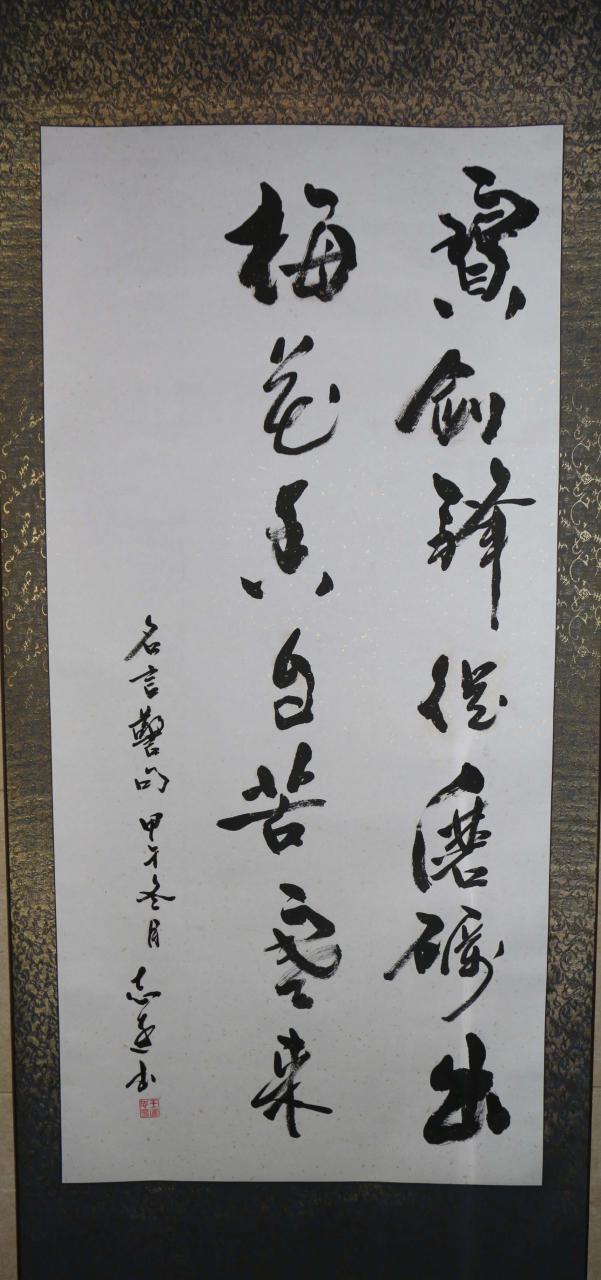 寶劍鋒從磨礪出
梅花香自苦寒來
名言警句 甲午冬月 志遠书